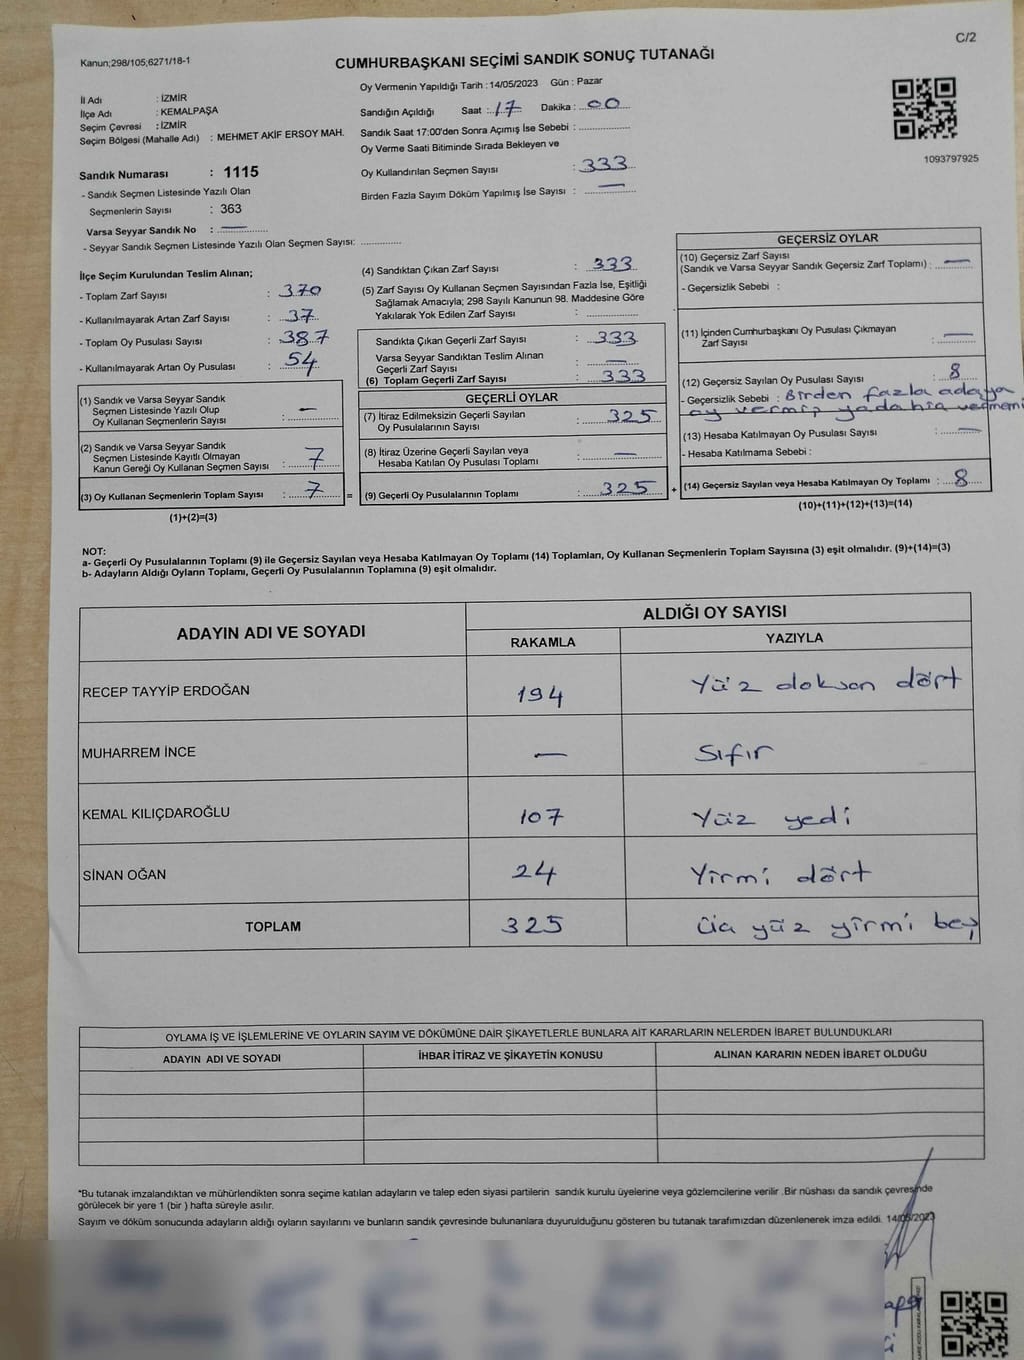 Kanun;298/105;6271/18-1
C/2
CUMHURBAŞKANI SEÇİMİ SANDIK SONUÇ TUTANAĞI
Oy Vermenin Yapıldığı Tarih : 14/05/2023 Gün : Pazar
İl Adı : İZMİR
İlçe Adı : KEMALPAŞA
Seçim Çevresi : İZMİR
Seçim Bölgesi (Mahalle Adı) : MEHMET AKİF ERSOY MAH.
Sandığın Açıldığı Saat : 17 Dakika : 00
Sandık Saat 17:00'den Sonra Açımış İse Sebebi :
Oy Verme Saati Bitiminde Sırada Bekleyen ve
Oy Kullandırılan Seçmen Sayısı : 333
Birden Fazla Sayım Döküm Yapılmış İse Sayısı : —
1093797925
Sandık Numarası : 1115
- Sandık Seçmen Listesinde Yazılı Olan
Seçmenlerin Sayısı : 363
Varsa Seyyar Sandık No : —
- Seyyar Sandık Seçmen Listesinde Yazılı Olan Seçmen Sayısı:
İlçe Seçim Kurulundan Teslim Alınan;
- Toplam Zarf Sayısı : 370
- Kullanılmayarak Artan Zarf Sayısı : 37
- Toplam Oy Pusulası Sayısı : 387
- Kullanılmayarak Artan Oy Pusulası : 54
(1) Sandık ve Varsa Seyyar Sandık
Seçmen Listesinde Yazılı Olup
Oy Kullanan Seçmenlerin Sayısı : —
(2) Sandık ve Varsa Seyyar Sandık
Seçmen Listesinde Kayıtlı Olmayan
Kanun Gereği Oy Kullanan Seçmen Sayısı : 7
(3) Oy Kullanan Seçmenlerin Toplam Sayısı : 7 =
(1)+(2)=(3)
(4) Sandıktan Çıkan Zarf Sayısı : 333
(5) Zarf Sayısı Oy Kullanan Seçmen Sayısından Fazla İse, Eşitliği
Sağlamak Amacıyla; 298 Sayılı Kanunun 98. Maddesine Göre
Yakılarak Yok Edilen Zarf Sayısı :
Sandıkta Çıkan Geçerli Zarf Sayısı : 333
Varsa Seyyar Sandıktan Teslim Alınan
Geçerli Zarf Sayısı : —
(6) Toplam Geçerli Zarf Sayısı : 333
GEÇERLİ OYLAR
(7) İtiraz Edilmeksizin Geçerli Sayılan
Oy Pusulalarının Sayısı : 325
(8) İtiraz Üzerine Geçerli Sayılan veya
Hesaba Katılan Oy Pusulası Toplamı : —
(9) Geçerli Oy Pusulalarının Toplamı : 325 +
GEÇERSİZ OYLAR
(10) Geçersiz Zarf Sayısı
(Sandık ve Varsa Seyyar Sandık Geçersiz Zarf Toplamı) : —
- Geçersizlik Sebebi :
(11) İçinden Cumhurbaşkanı Oy Pusulası Çıkmayan
Zarf Sayısı : —
(12) Geçersiz Sayılan Oy Pusulası Sayısı : 8
- Geçersizlik Sebebi : Birden fazla adaya
oy vermiş yada hiç vermemiş
(13) Hesaba Katılmayan Oy Pusulası Sayısı : —
- Hesaba Katılmama Sebebi :
(14) Geçersiz Sayılan veya Hesaba Katılmayan Oy Toplamı : 8
(10)+(11)+(12)+(13)=(14)
NOT:
a- Geçerli Oy Pusulalarının Toplamı (9) ile Geçersiz Sayılan veya Hesaba Katılmayan Oy Toplamı (14) Toplamları, Oy Kullanan Seçmenlerin Toplam Sayısına (3) eşit olmalıdır. (9)+(14)=(3)
b- Adayların Aldığı Oyların Toplamı, Geçerli Oy Pusulalarının Toplamına (9) eşit olmalıdır.
ADAYIN ADI VE SOYADI
ALDIĞI OY SAYISI
RAKAMLA YAZIYLA
RECEP TAYYİP ERDOĞAN 194 Yüz doksan dört
MUHARREM İNCE — Sıfır
KEMAL KILIÇDAROĞLU 107 Yüz yedi
SİNAN OĞAN 24 Yirmi dört
TOPLAM 325 üç yüz yirmi beş
OYLAMA İŞ VE İŞLEMLERİNE VE OYLARIN SAYIM VE DÖKÜMÜNE DAİR ŞİKAYETLERLE BUNLARA AİT KARARLARIN NELERDEN İBARET BULUNDUKLARI
ADAYIN ADI VE SOYADI İHBAR İTİRAZ VE ŞİKAYETİN KONUSU ALINAN KARARIN NEDEN İBARET OLDUĞU
*Bu tutanak imzalandıktan ve mühürlendikten sonra seçime katılan adayların ve talep eden siyasi partilerin sandık kurulu üyelerine veya gözlemcilerine verilir .Bir nüshası da sandık çevresinde
görülecek bir yere 1 (bir ) hafta süreyle asılır.
Sayım ve döküm sonucunda adayların aldığı oyların sayılarını ve bunların sandık çevresinde bulunanlara duyurulduğunu gösteren bu tutanak tarafımızdan düzenlenerek imza edildi. 14/05/2023